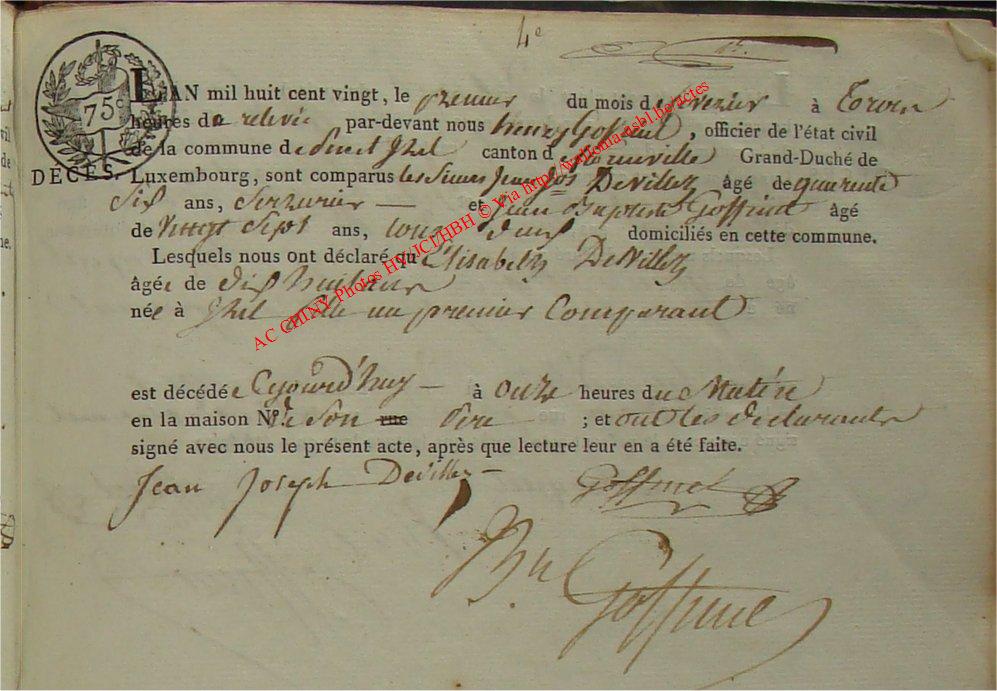 4e
75c
DÉCÈS.
L'AN mil huit cent vingt, le premier du mois de fevrier à
heures de relevée par-devant nous henry Goffinet, officier de l'état civil
de la commune de canton de florenville Grand-Duché de
Luxembourg, sont comparus les Sieurs Jean Jos DeVillez âgé de quarente
Six ans, Serrurier — et Jean Baptiste Goffinet âgé
de Vingt Sept ans, tous deux domiciliés en cette commune.
Lesquels nous ont déclaré que Elisabeth DeVillez
âgée de dix huit ans
née à Izel fille du premier Comparant
est décédée Cejourd'huy — à onze heures du Matin
en la maison No de Son rue Pere ; et ont les declarants
signé avec nous le présent acte, après que lecture leur en a été faite.
Jean Joseph Devillez
Goffinet
Goffinet
AC CHINY Photos HV/JCI/HBH © Via http://wallonia-asbl.be/actes